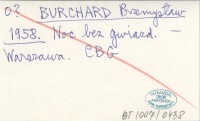 o? BURCHARD Przemysław
1958. Noc bez gwiazd. –
Warszawa. CBG
BT 1004/0438